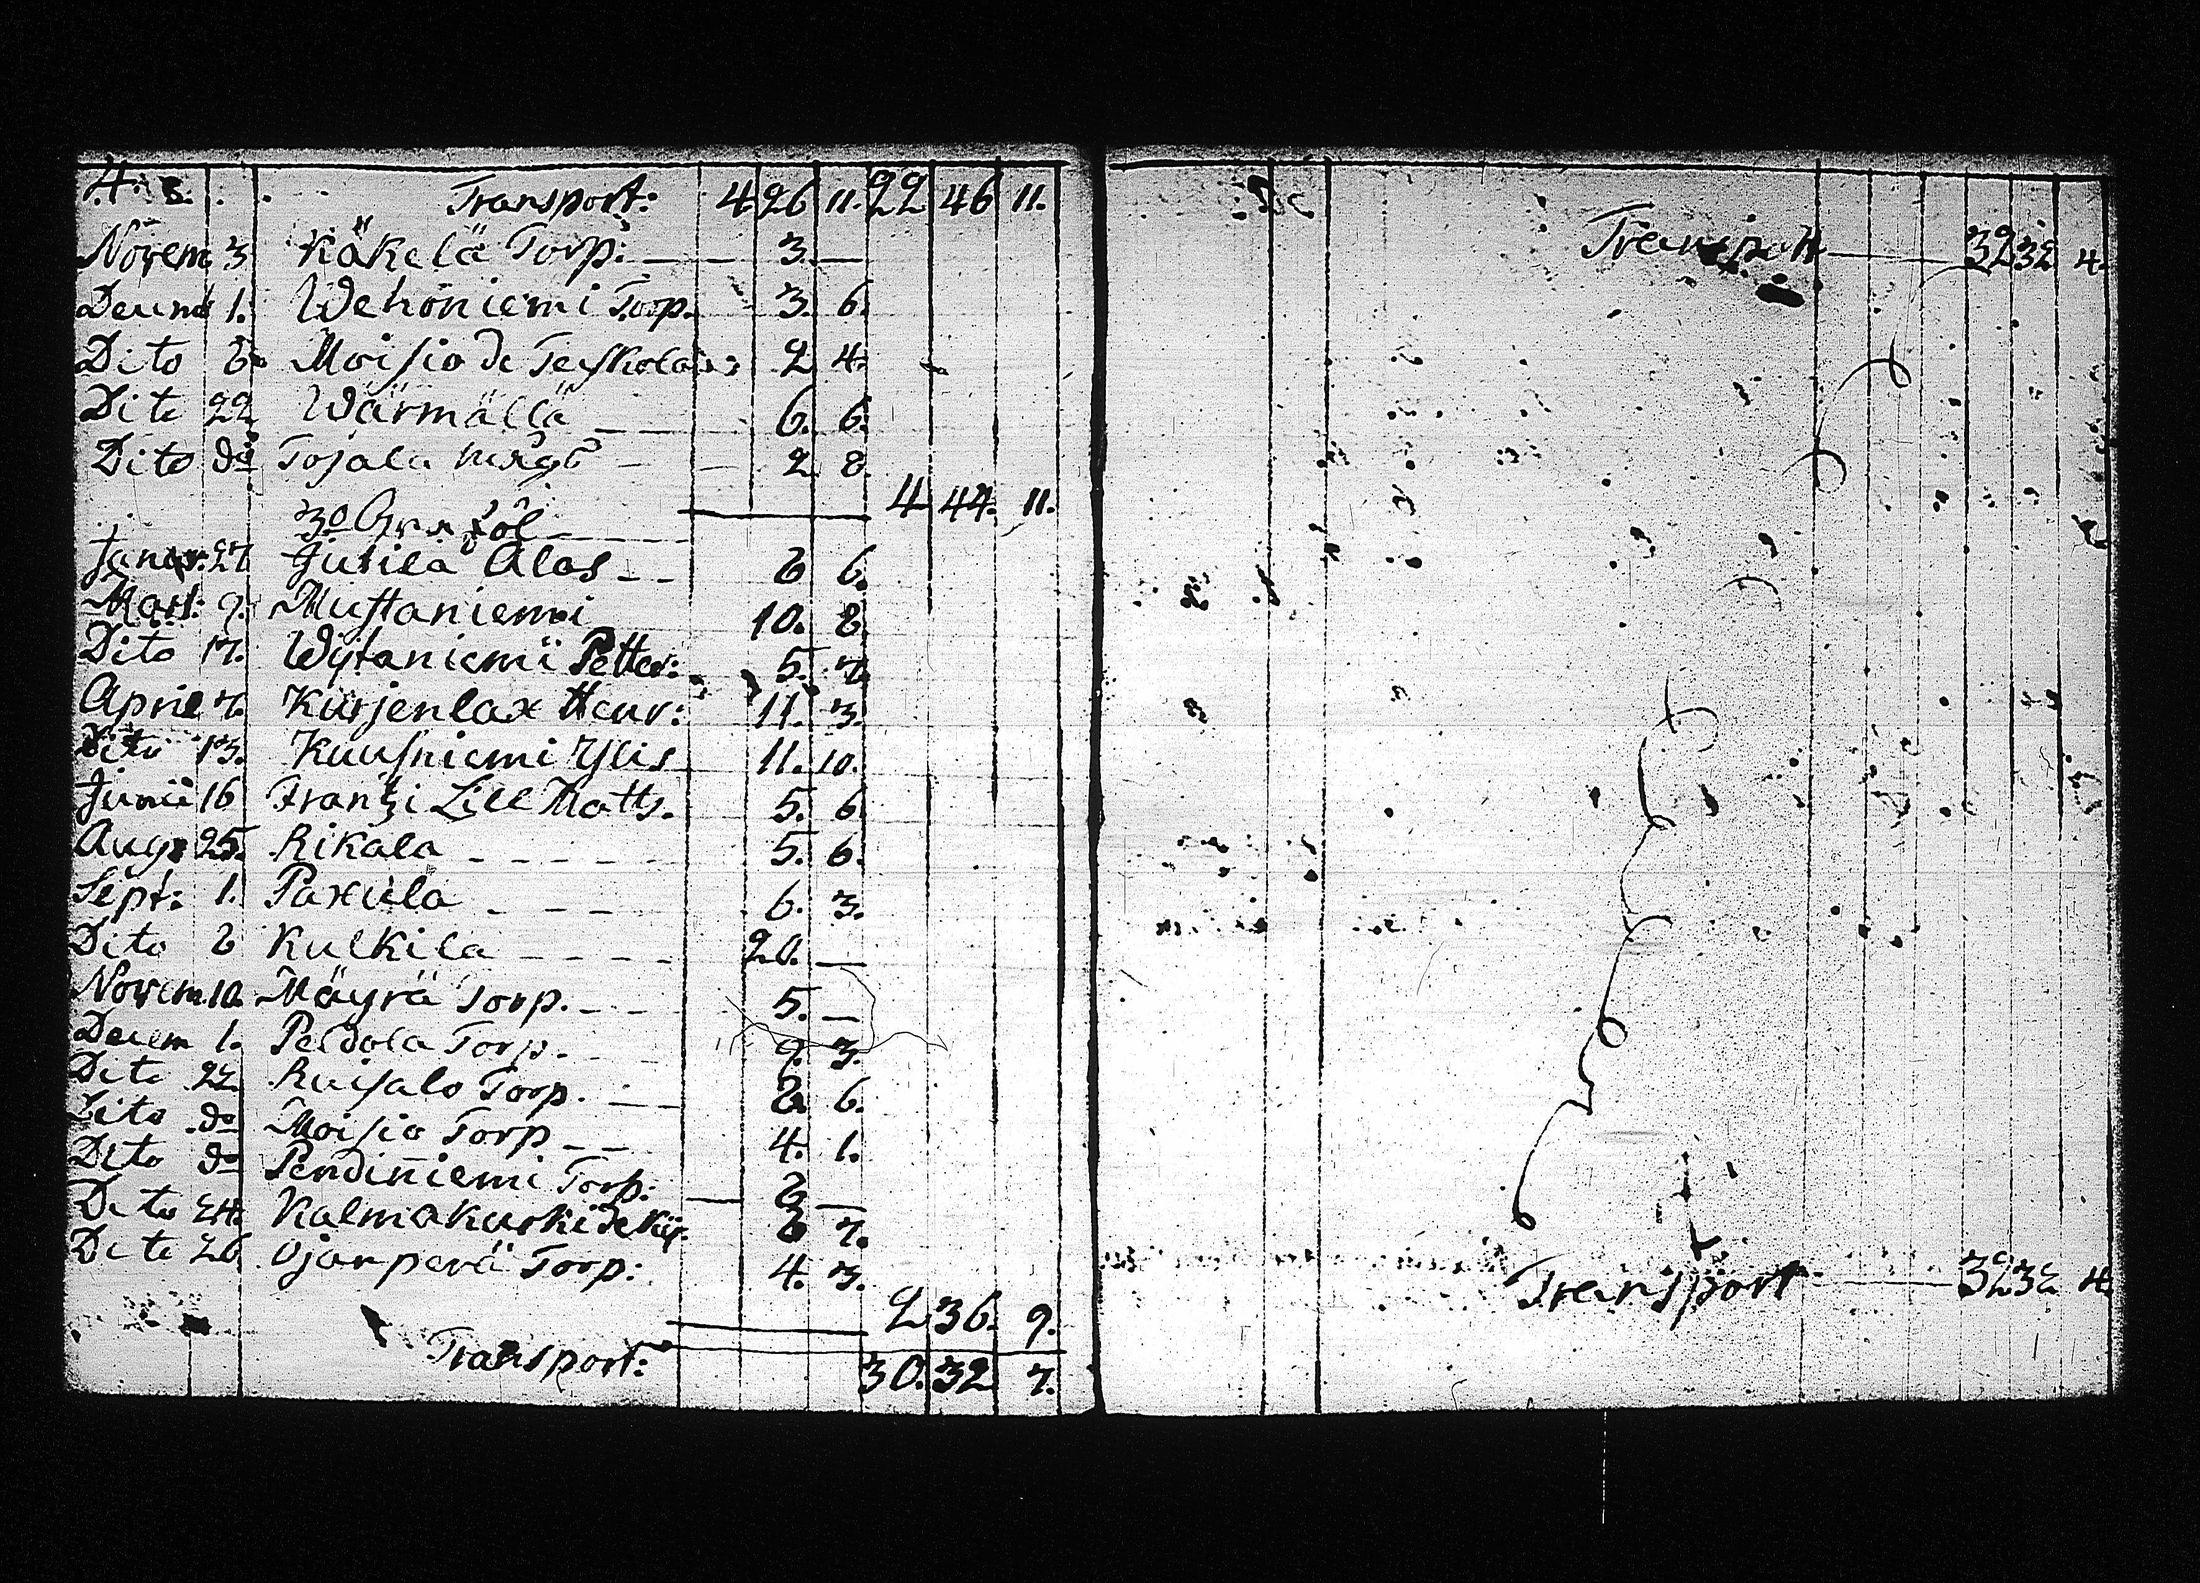 4. 3. Transport: 4 26 11. 22 46 11.
Novem 3 Käkelä Torp: 3. —
Decemb 1. Wehoniemi Torp. 3. 6.
Dito 6 Moisio de Teiskola 2 4.
Dito 22 Wärmällä 6. 6.
Dito do Tojala 2 8.
4 44. 11.
Januar: 27 Jutila Alas 8 6.
Mart: 9. Mustaniemi 10. 8.
Dito 17. Wytaniemi Petter: 5. 7.
April 7. Kurjenlax Henr: 11. 3.
Dito 13. Kuusniemi Ylis 11. 10.
Junii 16 Frantzi Lill Matts. 5. 6.
Aug: 25. Rikala 5. 6.
Sept: 1. Paxula 6. 3.
Dito 8 Kulkila 20. —
Novem 10. Mäyrä Torp. 5. —
Decem 1. Peldola Torp. 9. 3.
Dito 22 Ruisalo Torp. 8. 6.
Dito do Moisio Torp 4. 1.
Dito do Pendiniemi Torp: 8 —
Dito 24. Kalmakurki 8 7.
Dito 26. Ojanperä Torp: 4. 3.
2 36. 9.
Transport: 30. 32 7.
Transport 32 32 4.
Transport 32 32 4.